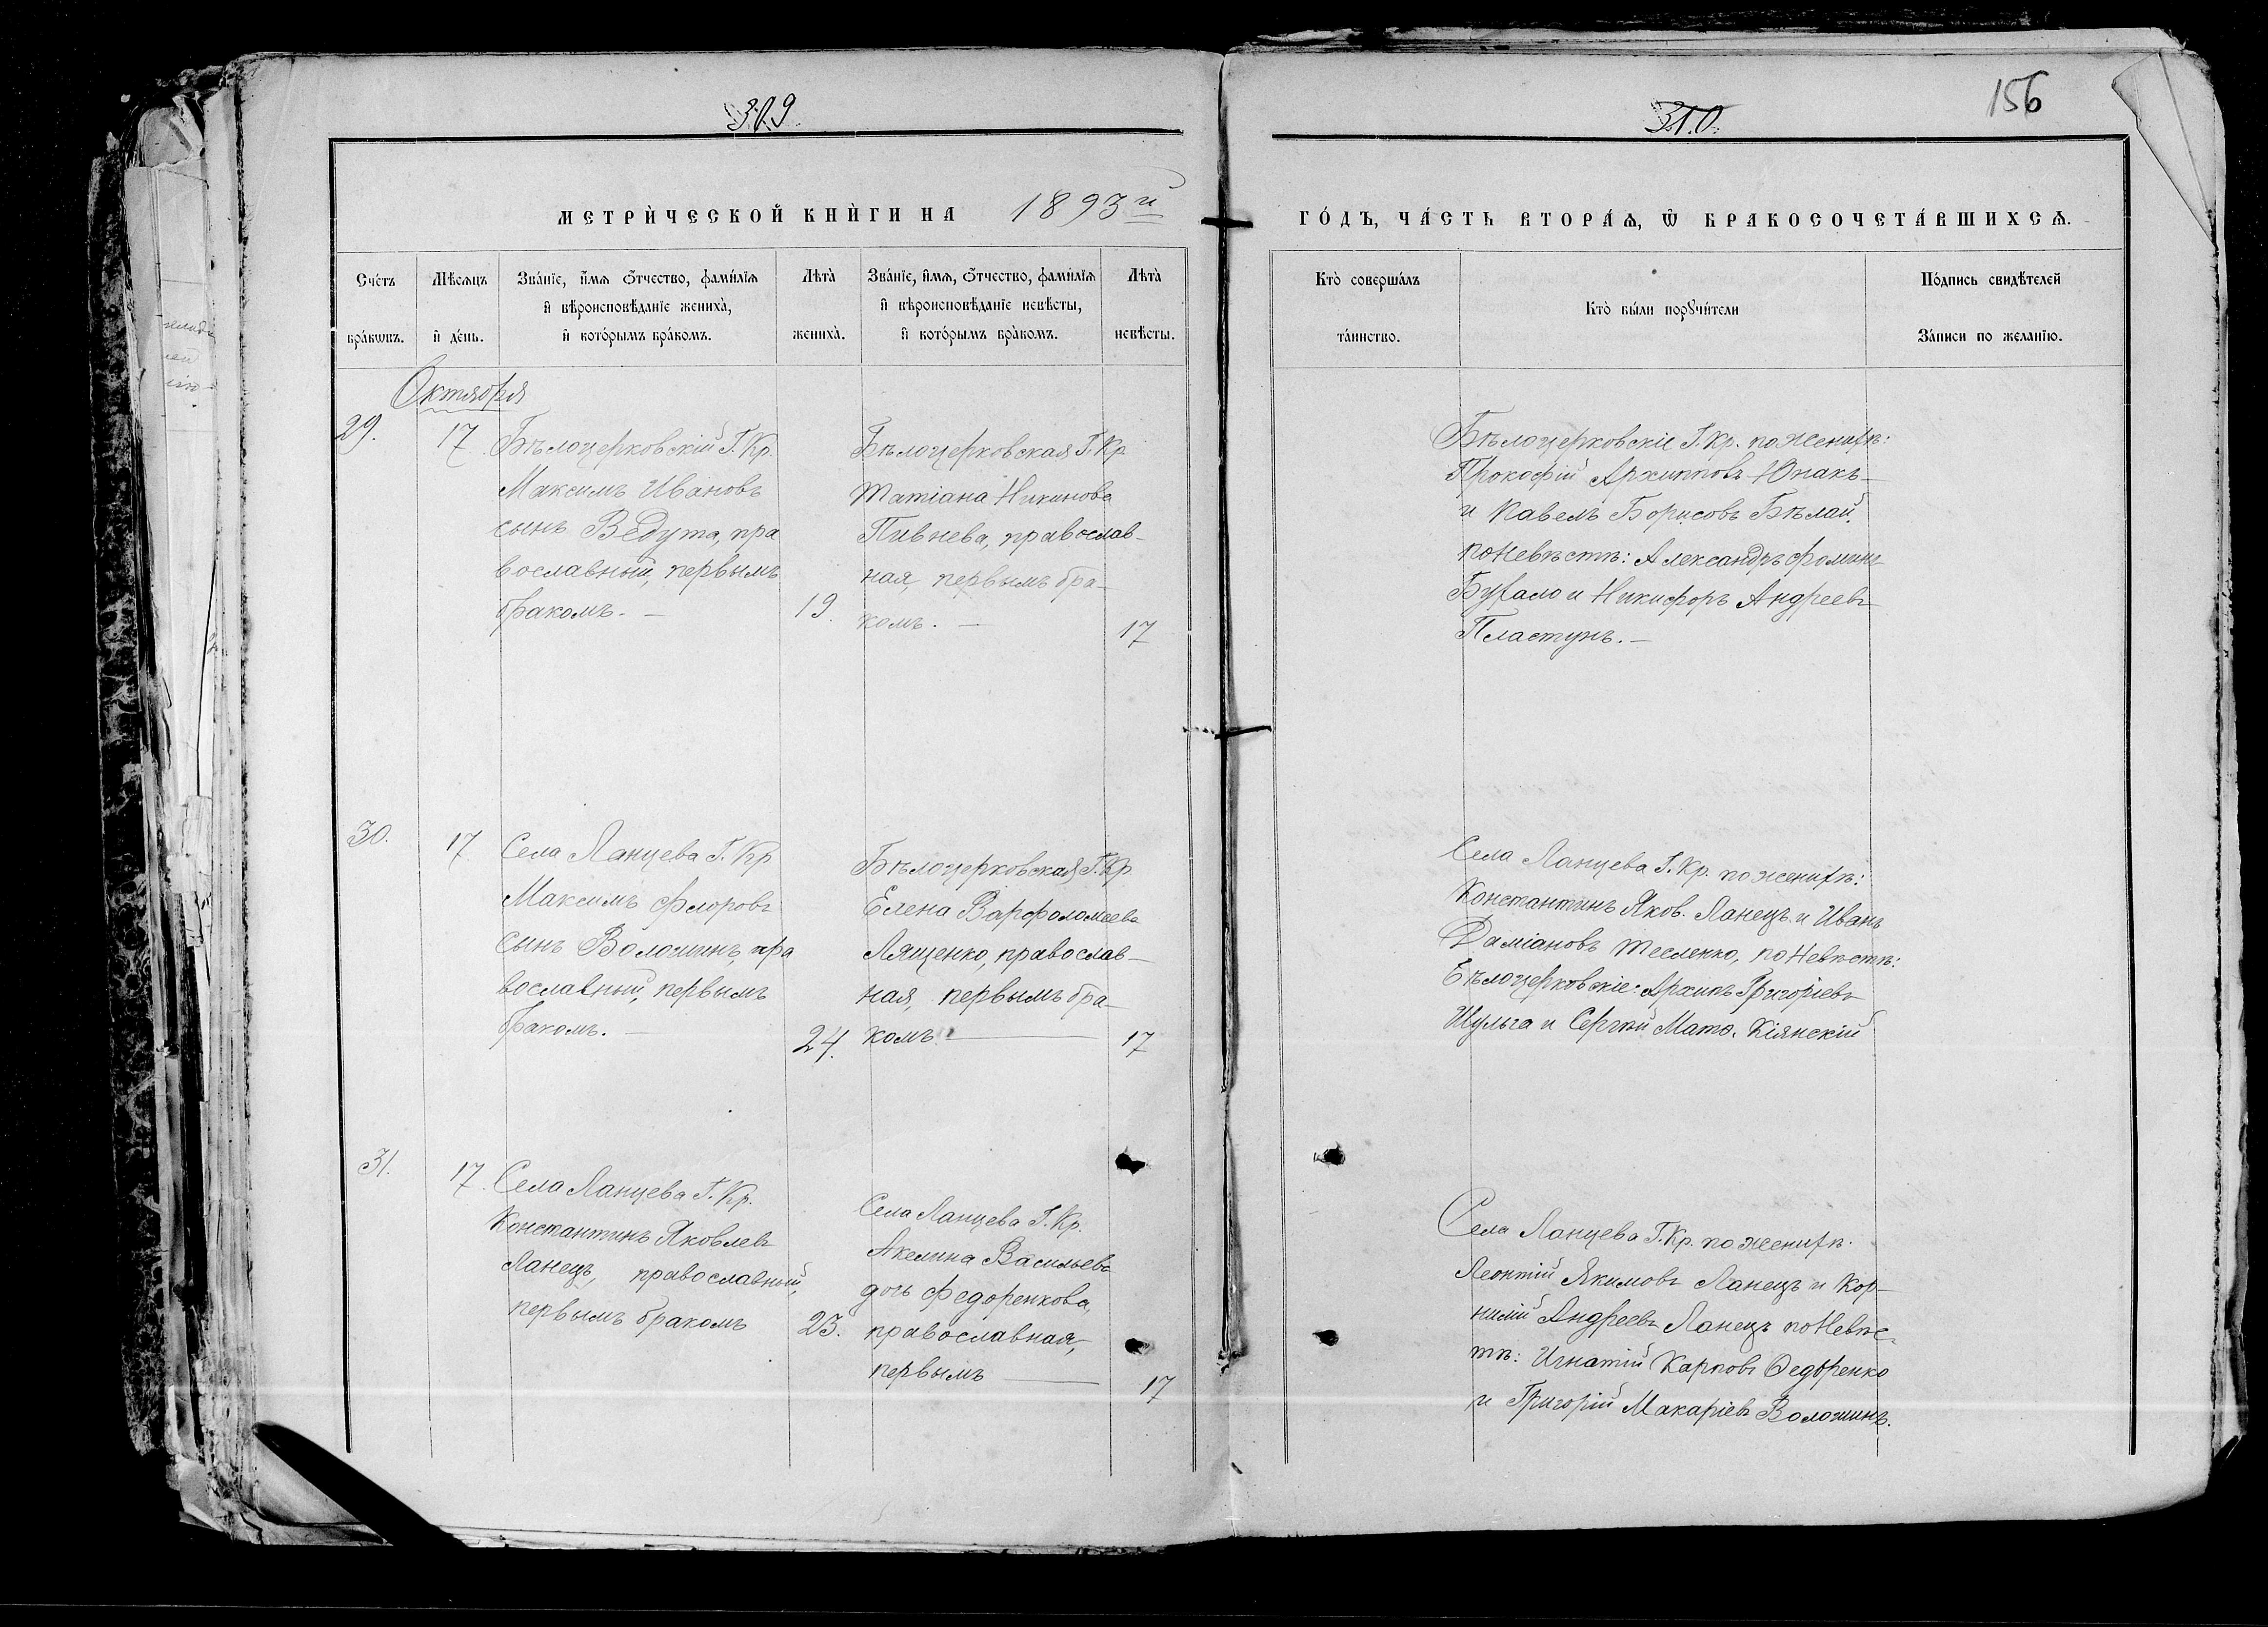 309.
310.
156
МЕТРИ́ЧЕСКОЙ КНИ́ГИ НА 1893й
ГО́ДЪ, ЧА́СТЬ ВТОРА́Ѧ, Ѿ БРАКОСОЧЕТА́ВШИХСѦ.
Сче́тъ бра́кѡвъ.
Мѣ́сѧцъ и҆ де́нь.
Зва́нїе, и҆́мѧ ѻ҆́тчество, фами́лїѧ
и҆ вѣроисповѣ́данїе жениха̀,
и҆ кото́рымъ бра́комъ.
Лѣта̀ жениха̀.
Зва́нїе, и҆́мѧ, ѻ҆́тчество, фами́лїѧ
и҆ вѣроисповѣ́данїе невѣ́сты,
и҆ кото́рымъ бра́комъ.
Лѣта̀ невѣ́сты.
Кто̀ соверша́лъ
та́инство.
Кто̀ бы́ли порꙋчи́тели
По́дпись свидѣ́телей
За́писи по жела́нїю.
Октября
29.
17
Бѣлоцерковскій Г. Кр.
Максимъ Ивановъ
сынъ Ведута, пра
вославный, первымъ
бракомъ. —
19.
Бѣлоцерковская Г. Кр
Татіана Никонова
Пивнева, православ-
ная, первымъ бра-
комъ. —
17
Бѣлоцерковскіе Г. Кр. по женихѣ:
Прокофій Архиповъ Юнакъ
и Павелъ Борисовъ Бѣлай.
по невѣстѣ: Александръ Фоминъ
Бухало и Никифоръ Андреевъ
Пластунъ. —
30.
17
Села Ланцева Г. Кр
Максимъ Флоровъ
сынъ Волошинъ, пра
вославный, первымъ
бракомъ. —
24.
Бѣлоцерковская Г. Кр
Елена Варфоломеева
Лященко, православ-
ная, первымъ бра-
комъ —
17
Села Ланцева Г. Кр. по женихѣ:
Константинъ Яков. Ланецъ и Иванъ
Даміановъ Тесленко, по невѣстѣ:
Бѣлоцерковскіе: Архипъ Григоріевъ
Шульга и Сергѣй Матѳ. Кіянскій
31.
17.
Села Ланцева Г. Кр.
Константинъ Яковлевъ
Ланецъ, православный,
первымъ бракомъ
23.
Села Ланцева Г. Кр.
Акелина Васильева
дочь Федоренкова,
православная,
первымъ —
17
Села Ланцева Г. Кр. по женихѣ.
Леонтій Якимовъ Ланецъ и Кор-
нилій Андреевъ Ланецъ по невѣс-
тѣ: Игнатій Карповъ Ѳедоренко
и Григорій Макаріевъ Волошинъ.